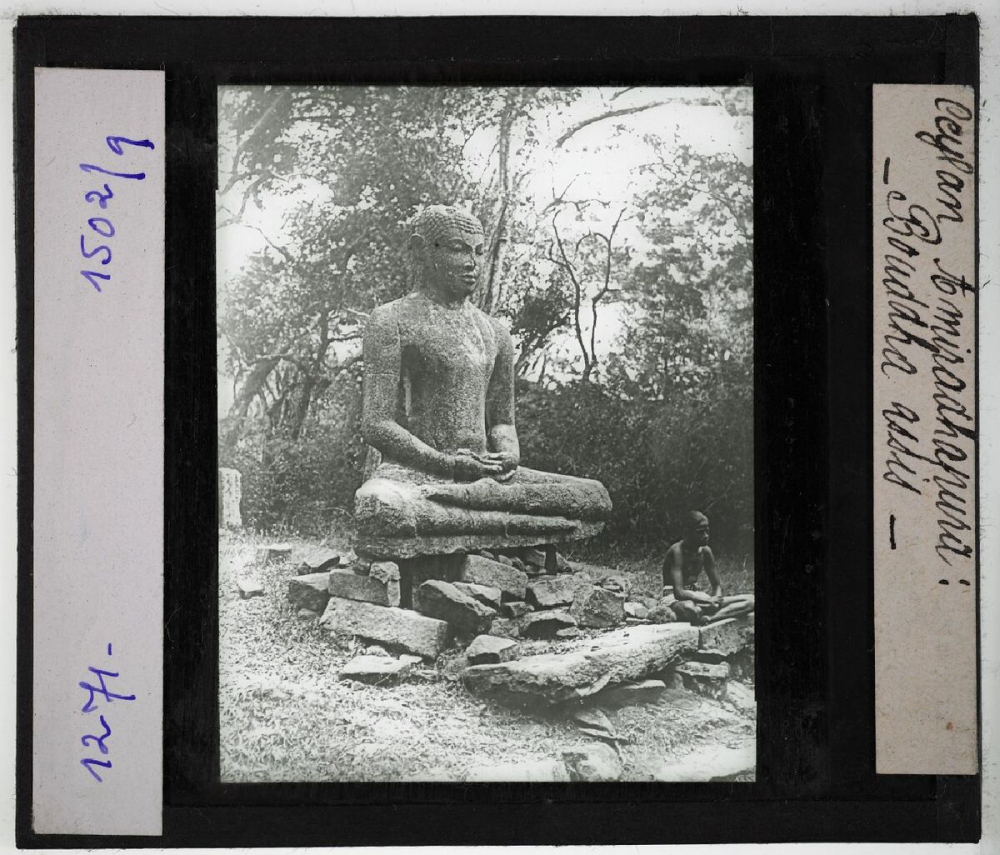 1502/9
1271-
Ceylan Amuradhapura:
- Bouddha assis -